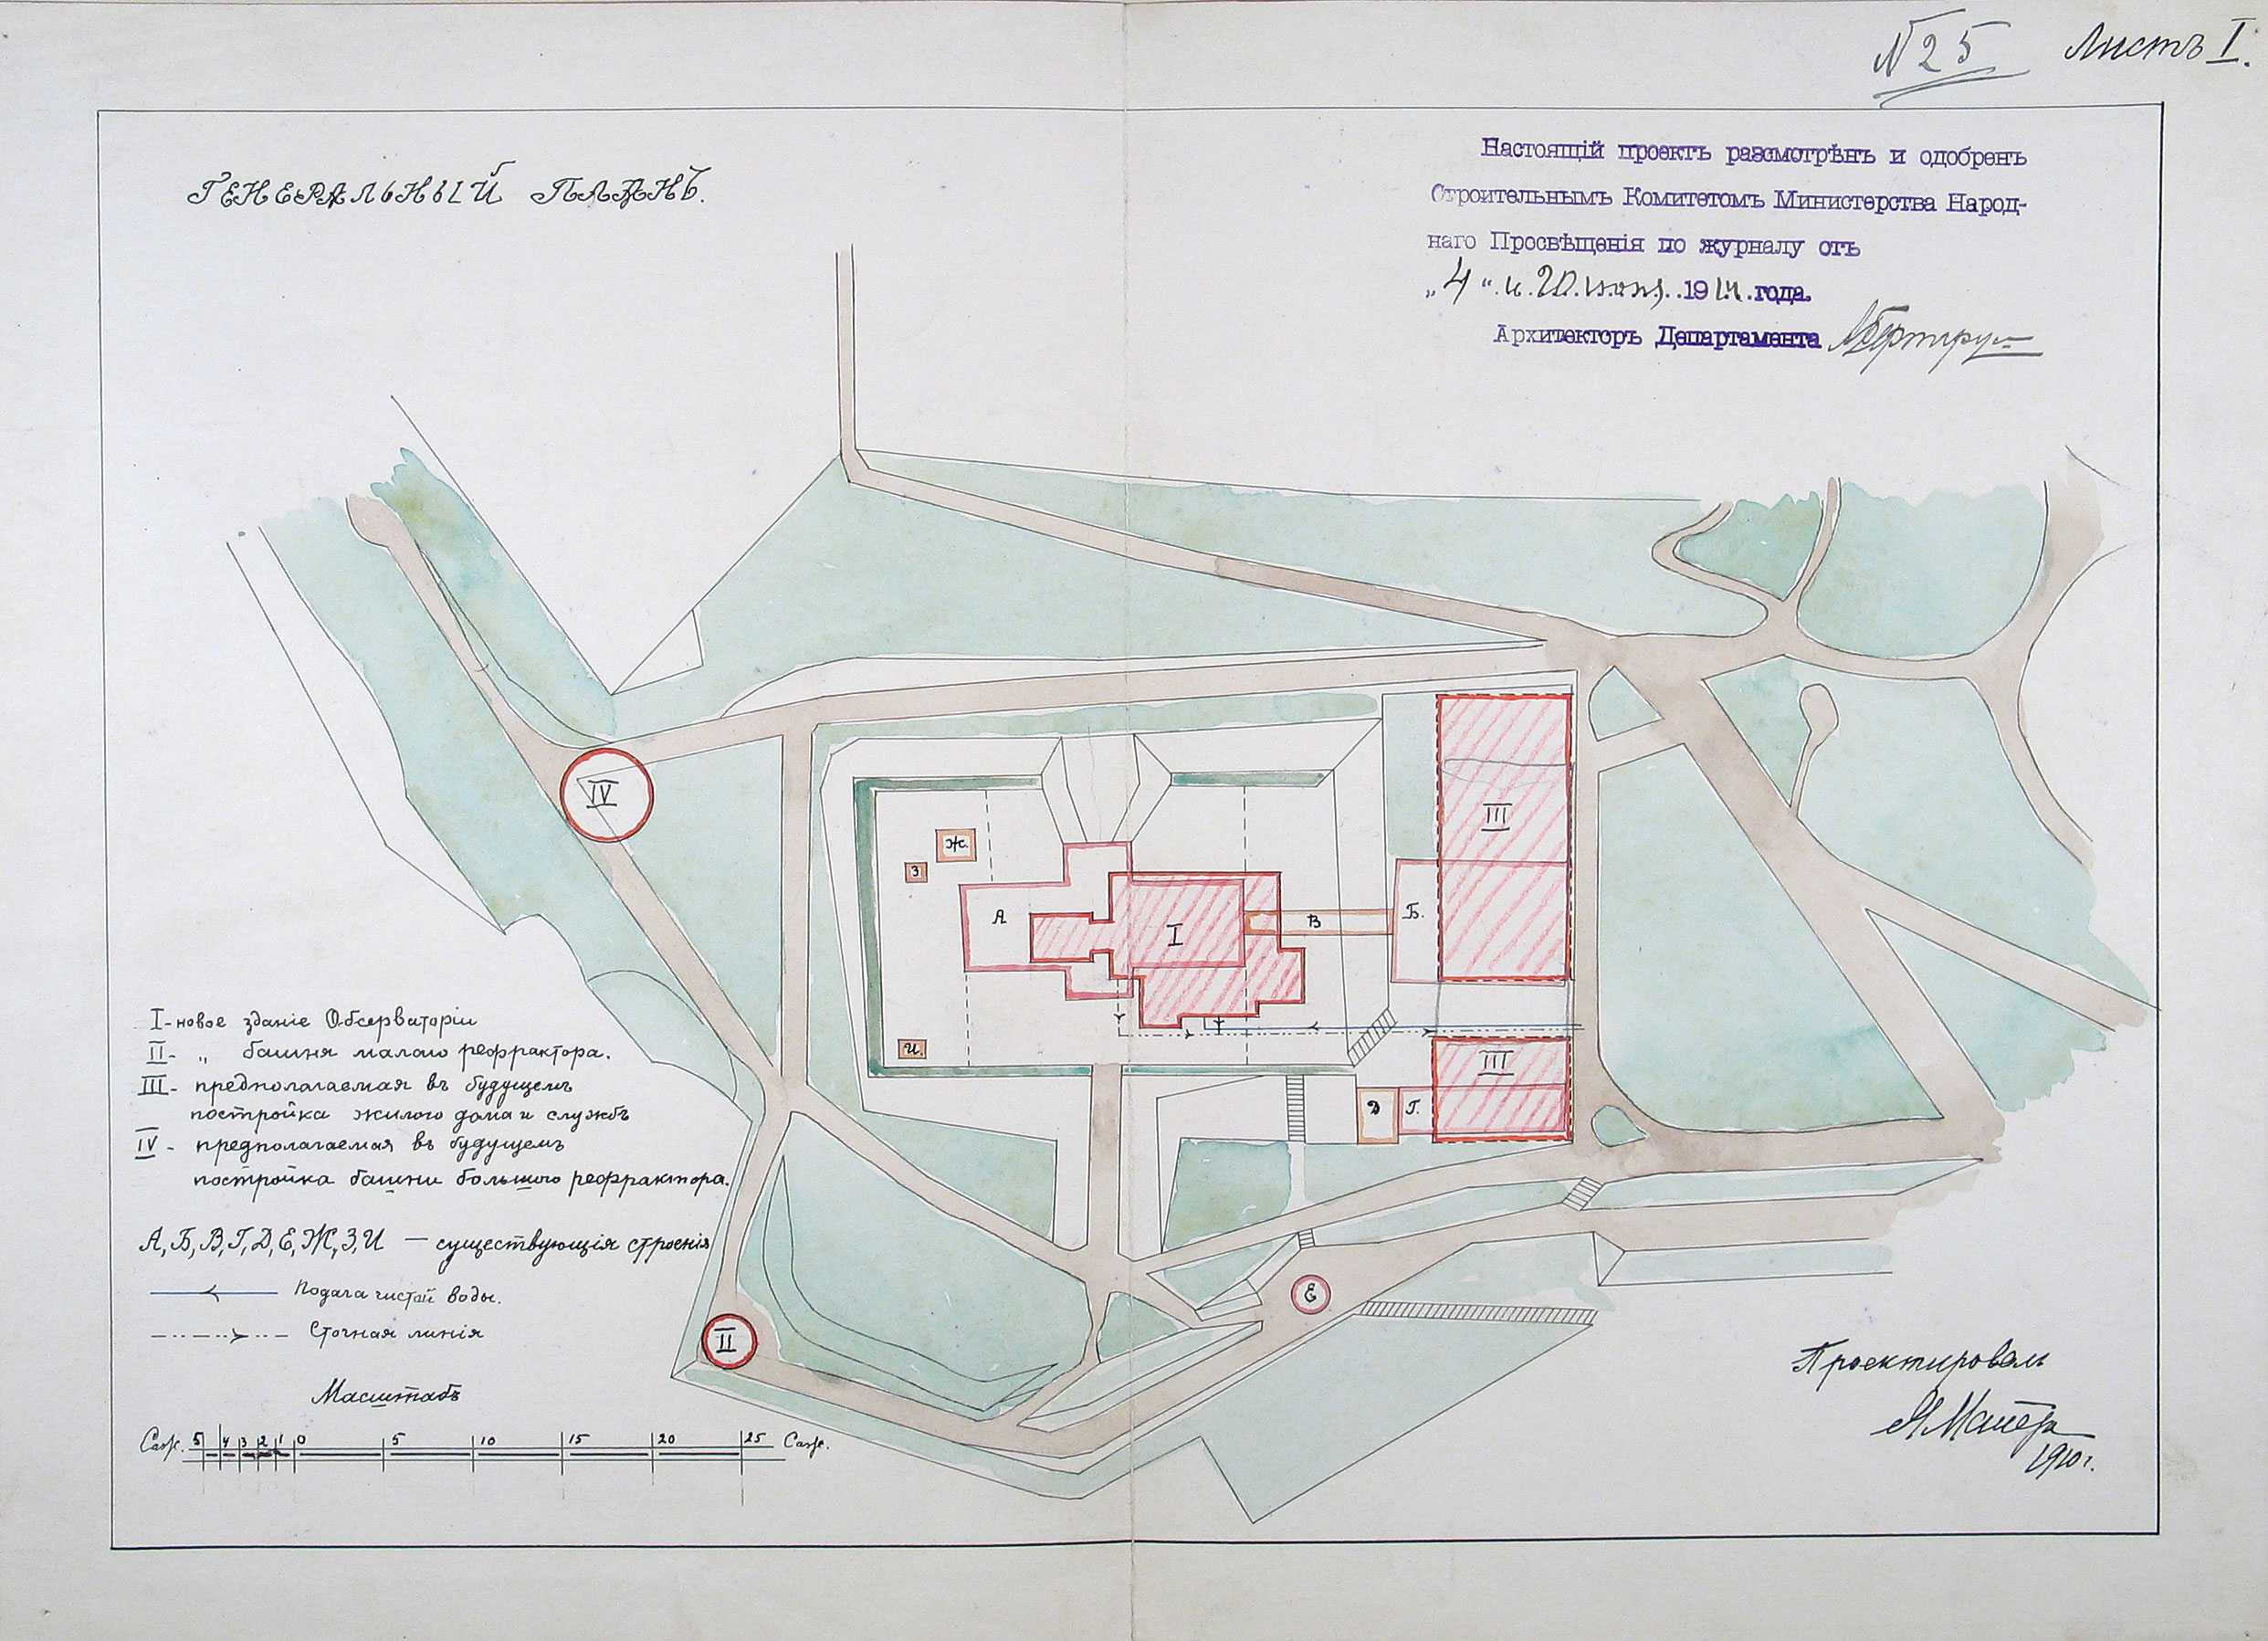 № 25 Листъ I.
ГЕНЕРАЛЬНЫЙ ПЛАНЪ.
Настоящій проектъ разсмотрѣнъ и одобренъ
Строительнымъ Комитетомъ Министерства Народ-
наго Просвѣщенія по журналу отъ
„4“ и 20 іюня 1911 года.
Архитекторъ Департамента
IV
III
Ж.
З
А
I
В
Б.
И.
III
Д
Г.
Е
II
I - новое зданіе Обсерваторіи
II - „ башня малаго рефрактора.
III - предполагаемая въ будущемъ
постройка жилого дома и службъ
IV - предполагаемая въ будущемъ
постройка башни большого рефрактора.
А, Б, В, Г, Д, Е, Ж, З, И — существующія строенія
Подача чистой воды.
Сточная линія
Масштабъ
Саж. 5 4 3 2 1 0 5 10 15 20 25 Саж.
Проектировалъ
1910 г.